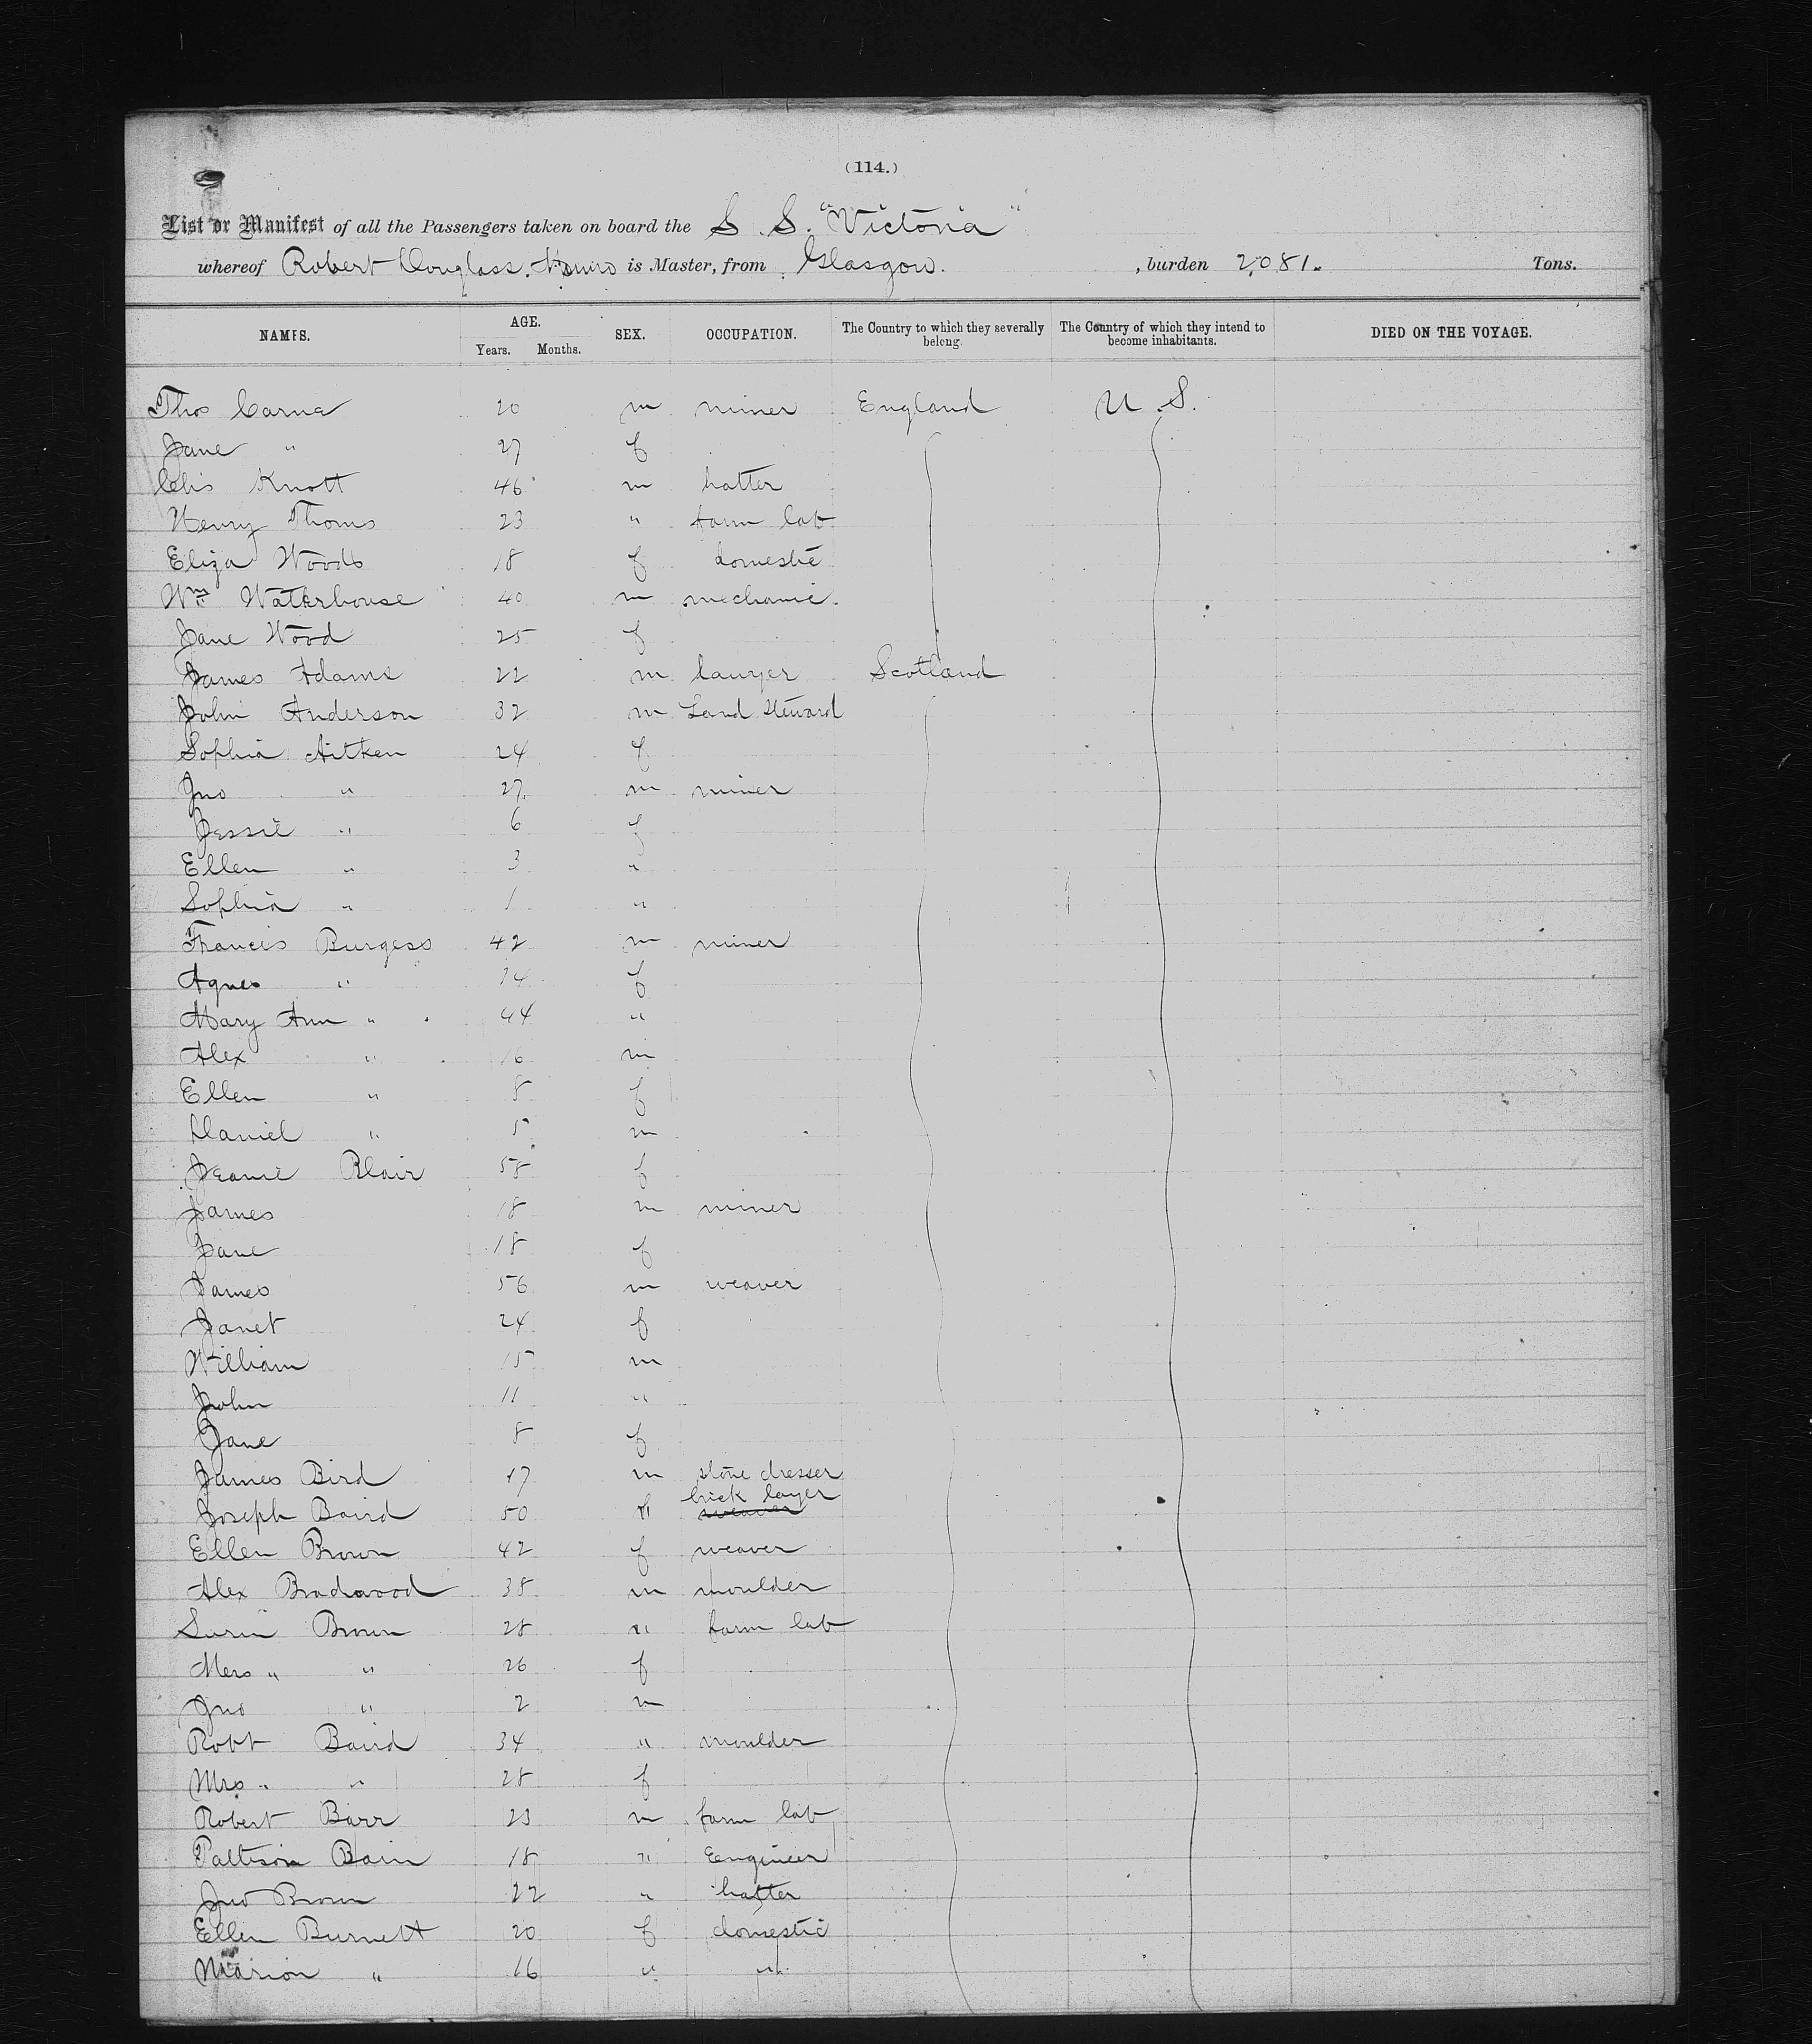 (114.)
List or Manifest of all the Passengers taken on board the S. S. "Victoria"
whereof Robert Douglass Munro is Master, from Glasgow. , burden 2,081. Tons.
NAMES. AGE. SEX. OCCUPATION. The Country to which they severally belong. The Country of which they intend to become inhabitants. DIED ON THE VOYAGE.
Years. Months.
Thos Carne 20 m miner England U.S.
Jane " 27 f
Knott 46 m hatter
Henry Thoms 23 " farm lab
Eliza Woods 18 f domestic
Wm Waterhouse 40 m mechanic.
Jane Wood 25 f
James Adams 22 m lawyer Scotland
John Anderson 32 m Land Steward
Sophia Aitken 24 f
Jno " 27 m miner
Jessie " 6 f
Ellen " 3 "
Sophia " 1 "
Francis Burgess 42 m miner
Agnes " 14 f
Mary Ann " 44 "
Alex " 16 m
Ellen " 8 f
Daniel " 5 m
Jeanie Blair 58 f
James 18 m miner
Jane 18 f
James 56 m weaver
Janet 24 f
William 15 m
John 11 "
Jane 8 f
James Bird 17 m stone dresser
Joseph Baird 50 " brick layer weaver
Ellen Brown 42 f weaver
Alex Bradwood 38 m moulder
Brown 28 " farm lab
Mrs " " 26 f
Jno " 2 m
Robt Baird 34 " moulder
Mrs " " 28 f
Robert Barr 23 m farm lab
Pattison Bain 18 " Engineer
Jno Brown 22 " hatter
Ellen Burnett 20 f domestic
Marion " 16 " "